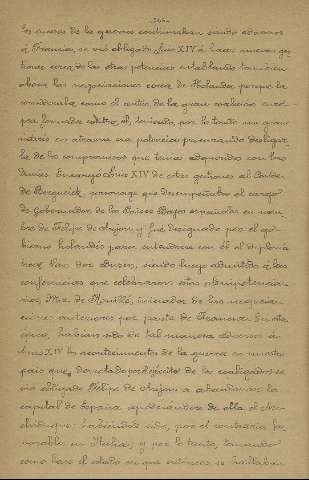 -366-
los sucesos de la guerra continuaban siendo adversos
á Francia, se vió obligado Luis XIV á hacer nuevas ges-
tiones cerca de las otras potencias entablando también
ahora las negociaciones cerca de Holanda, porque la
consideraba como el centro de la gran coalición euro-
pea formada contra él, teniendo, por lo tanto un gran
interés en atraerse esa potencia procurando desligar-
la de los compromisos que tenía adquiridos con las
demás. Encargó Luis XIV de estas gestiones al Conde
de Bergueick, personage que desempeñaba el cargo
de Gobernador de los Países Bajos españoles en nom-
bre de Felipe de Anjou y fué designado por el go-
bierno holandés para entenderse con él el diplomá-
tico Van der Dussen, siendo luego admitido á las
conferencias que celebraron estos plenipotencia-
rios, Mr. de Rouillé, iniciador de las negociacio-
nes anteriores por parte de Francia. En este
época, habían sido de tal manera adversos á
Luis XIV los acontecimientos de la guerra en nuestro
país que, derrotado por ejército de los coaligados se
vió obligado Felipe de Anjou á abandonar la
capital de España apoderándose de ella el Ar-
chiduque; habiéndole sido, por el contrario fa-
vorable en Italia; y por lo tanto, tomando
como base el estado en que entonces se hallaban